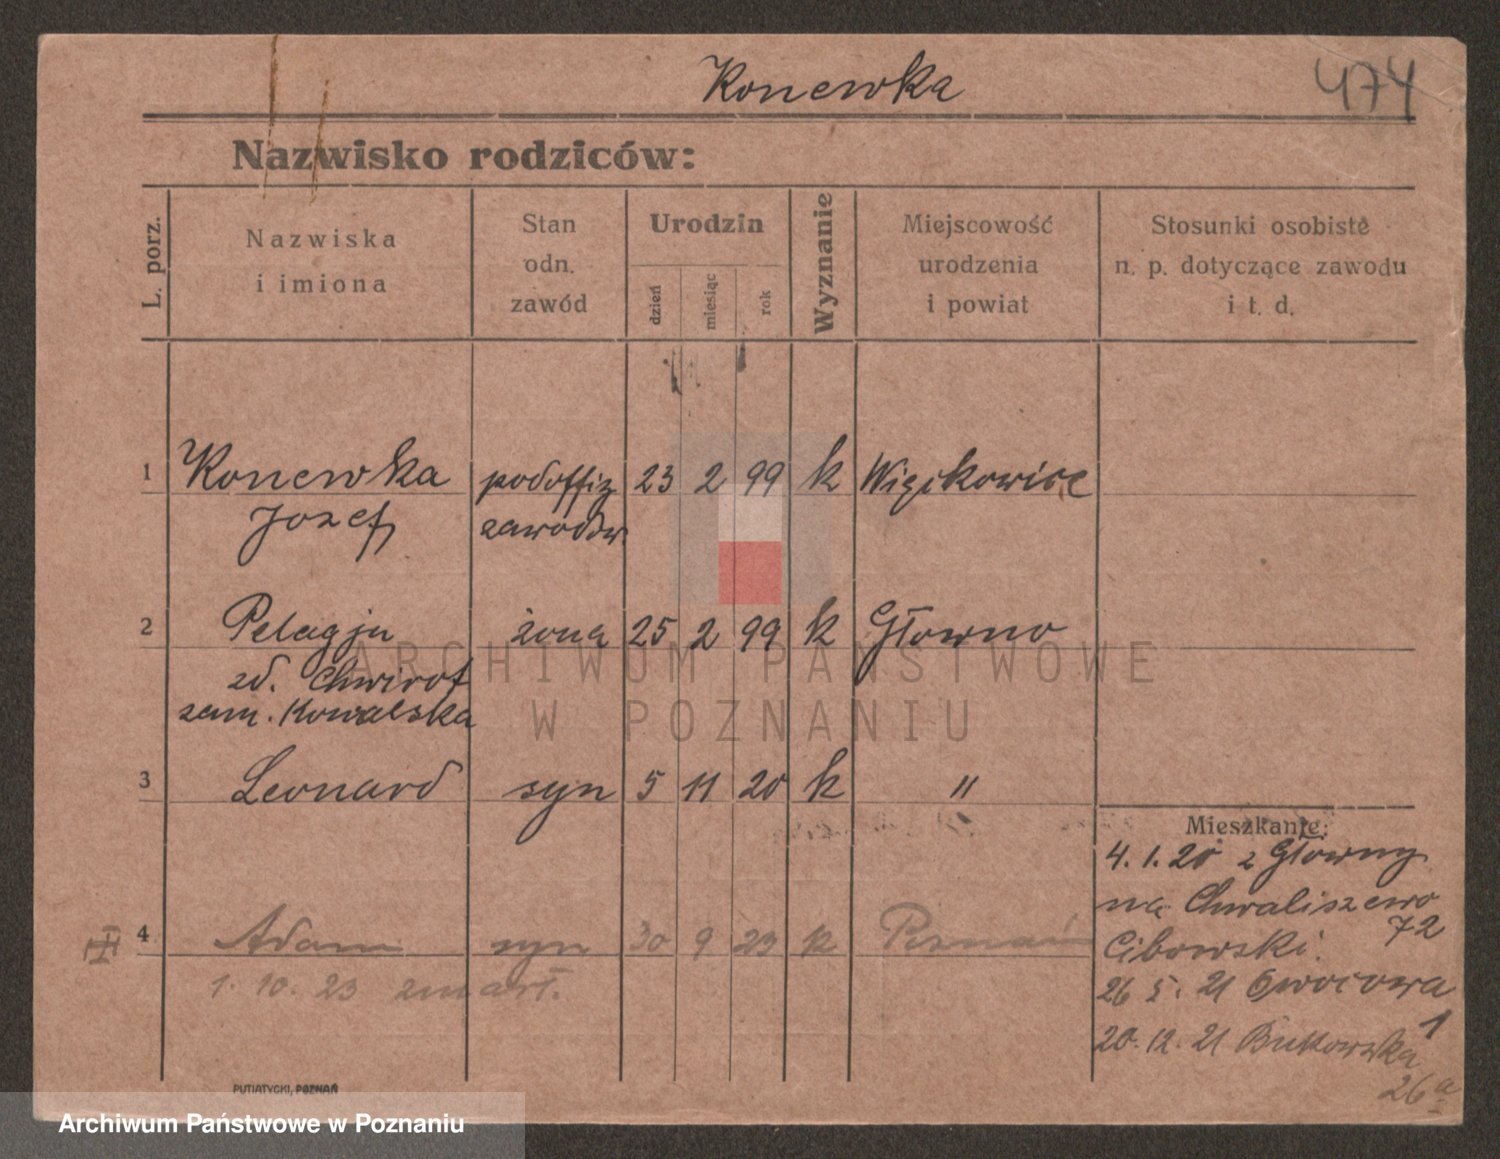 Konewka
474
Nazwisko rodziców:
L. porz.
Nazwiska
i imiona
Stan
odn.
zawód
Urodzin
dzień
miesiąc
rok
Wyznanie
Miejscowość
urodzenia
i powiat
Stosunki osobiste
n. p. dotyczące zawodu
i t. d.
1 Konewka podoffiz 23 2 99 k
Jozef zawodow.
2 Pelagja żona 25 2 99 k Głowno
zd. Chwirot
zam. Kowalska
3 Leonard syn 5 11 20 k "
4 Adam syn 30 9 23 k Poznań
1. 10. 23 zmarł.
Mieszkanie:
4. 1. 20 z Główny
na Chwaliszewo
72
Cibowski.
26 5. 21 Owocowa
1
20. 12. 21 Bukowska
26a
PUTIATYCKI, POZNAŃ
ARCHIWUM PAŃSTWOWE
W POZNANIU
Archiwum Państwowe w Poznaniu